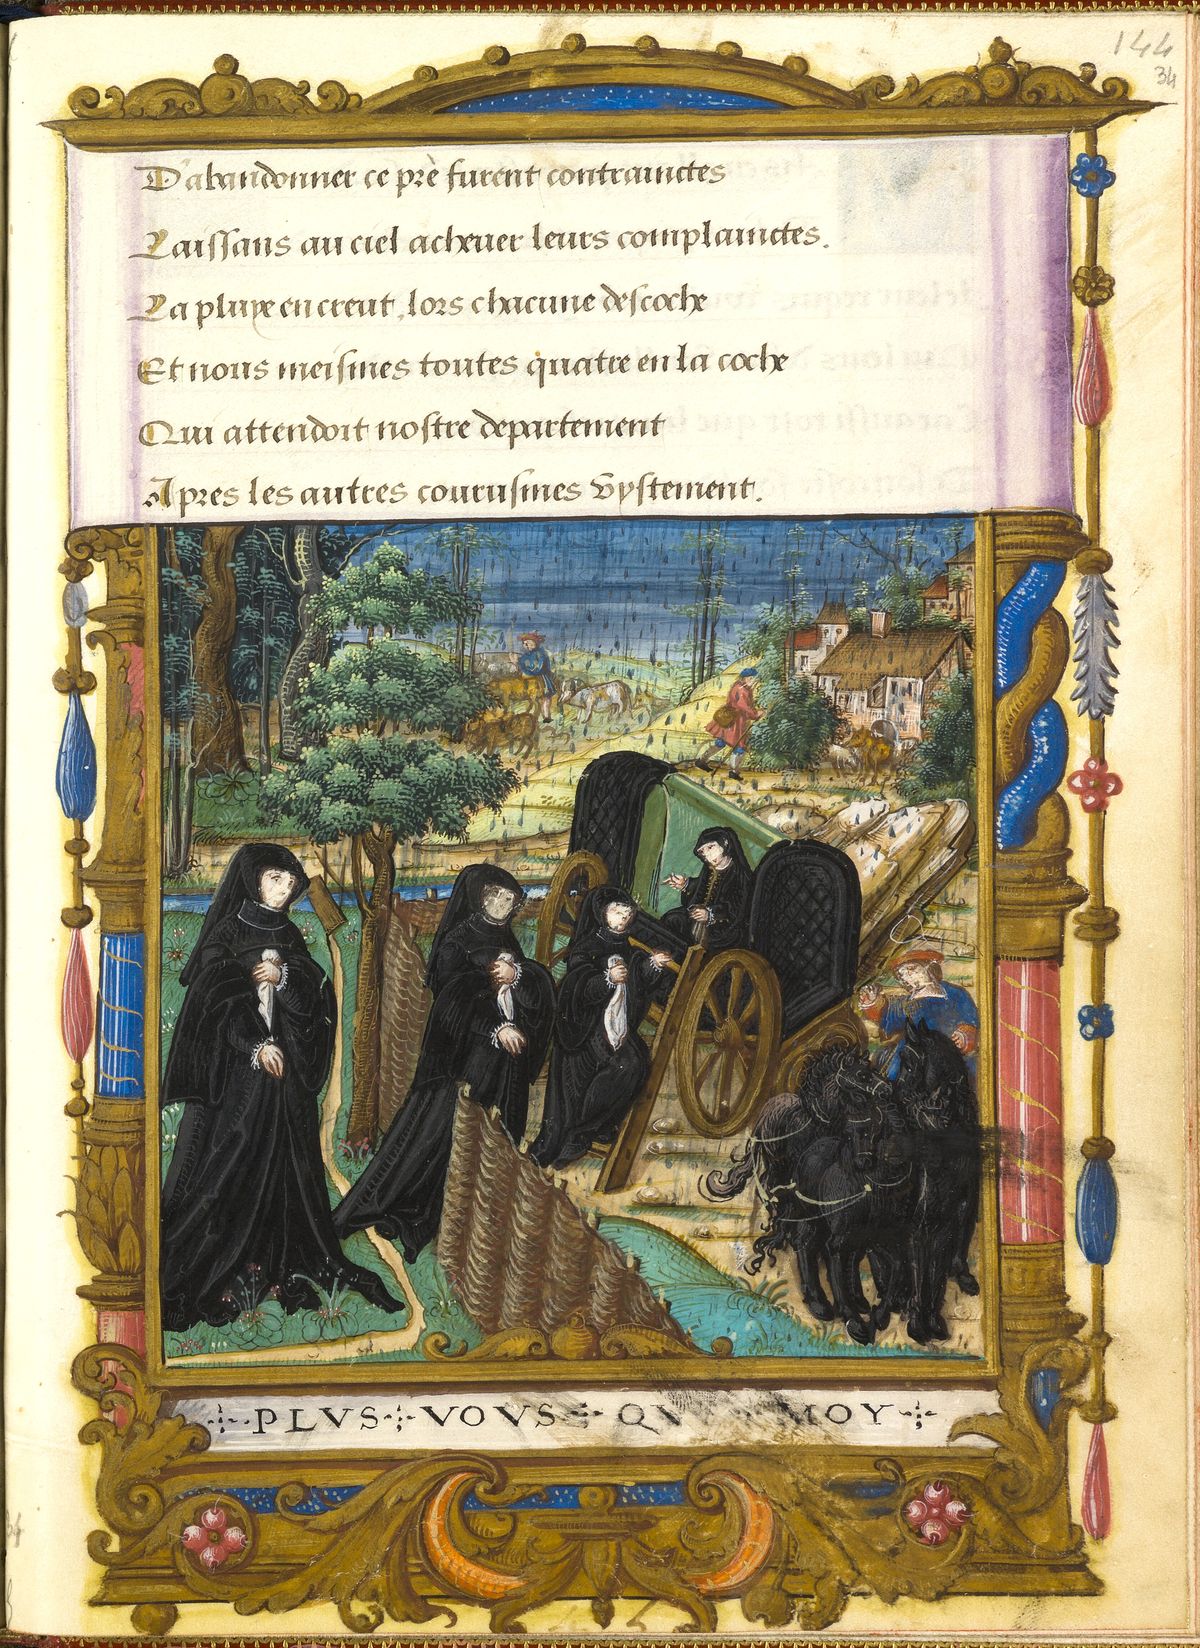 144
34
D'abandonner ce pré furent contrainctes
Laissans au ciel achever leurs complainctes.
La pluye en creut, lors chacune descoche
Et nous meismes toutes quatre en la coche
Qui attendoit nostre departement
Apres les autres courusmes vystement.
PLVS VOVS QV MOY